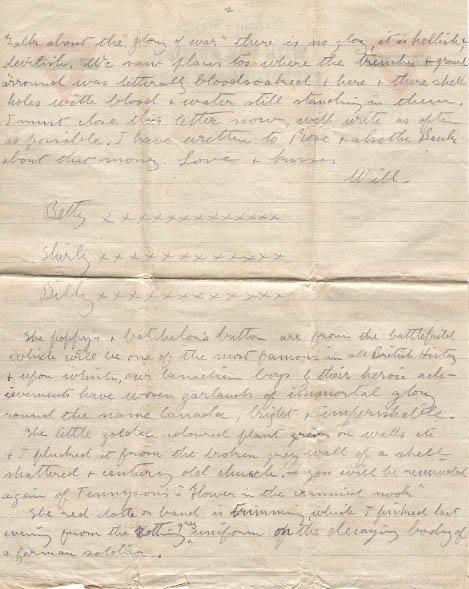 2
Talk about the "glory of war" there is no glory, it is hellish &
devilish. We saw places too where the trenches & ground
around was litterally bloodsoaked & here & there shell
holes with blood & water still standing in them.
I must close this letter now, will write as often
as possible. I have written to Rose & also the Bank
about that money. Love & kisses
Will
Betty x x x x x x x x x x x x x
Shirly x x x x x x x x x x x x x
Billy x x x x x x x x x x x x x
The poppys & batchelor's button are from the battlefield
which will be one of the most famous in all British History
& upon which our Canadian boys & their heroic ach-
ievements have woven garlands of immortal glory
round the name Canada, bright & imperishable.
The little golden coloured plant grows on walls etc
& I plucked it from the broken grey wall of a shell
shattered & century old church. - you will be reminded
again of Tennyson's a "Flower in the crannied nook"
The red cloth or band is trimming which I picked last
evening from the rotting grey uniform on the decaying body of
a german soldier.